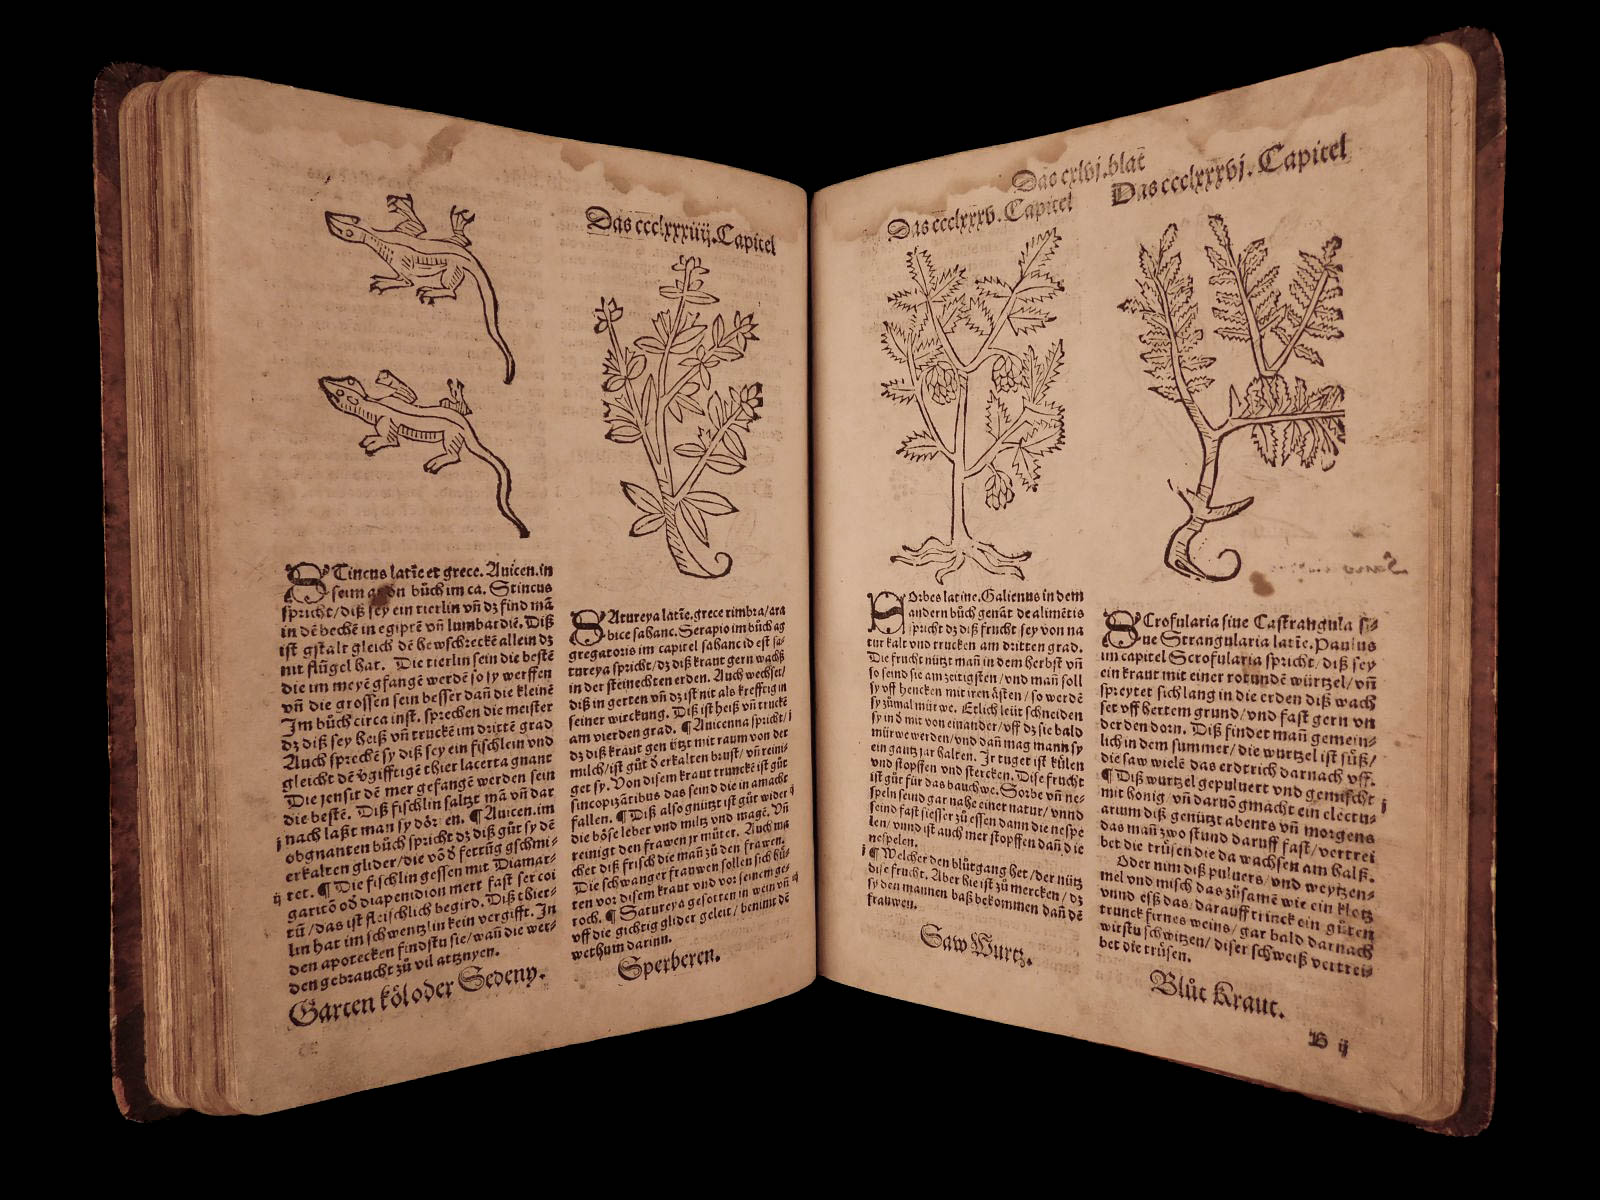 Stincus latīe et grece. Avicen. in
seim büch im ca. Stincus
spricht/diß sey ein tierlin vñ dz find mā
in dē bechē in egiptē vñ lumbatdiē. Diß
ist gstalt gleich dē hewschreckē allein dz
nit flügel hat. Die tierlin sein die bestē
die im meyē gfangē werdē so sy werffen
vñ die grossen sein besser dañ die kleinē
Im büch circa inst. sprechen die meister
dz diß sey heiß vñ truckē im drittē grad
Auch sprechē sy diß sey ein fischlein vnd
gleicht dē vgifftigē thier lacerta gnant
Die jensit dē mer gefangē werden sein
die bestē. Diß fischlin saltzt mā vñ dar
nach laßt man sy dörren. ¶ Auicen. im
obgnanten büch spricht dz diß güt sy dē
erkalten glider/die võ ð fettūg gschmi-
ret. ¶ Die fischlin gessen mit Diamar-
garitō oð diapenidion mert fast ser coi
tū/das ist fleischlich begird. Diß thier-
lin hat im schwentzlin kein vergifft. In
den apotecken findstu sie/wañ die wer-
den gebraucht zů vil artznyen.
Garten köl oder Sedeny.
Das ccclxxxiiij. Capitel
Satureya latīe. grece timbra/ara
bice sahanc. Serapio im büch ag
gregatoris im capitel sahanc id est sa-
tureya spricht/dz diß kraut gern wachß
in der steinechten erden. Auch wechset/
diß in gerten vñ dz ist nit als krefftig in
seiner wirckung. Diß ist heiß vñ truckē
am vierden grad. ¶ Auicenna spricht/
dz diß kraut gen ützt mit raum von der
milch/ist güt ð erkalten brust/vñ reini-
get sy. Von disem kraut trunckē ist güt
sincopizātibus das seind die in amacht
fallen. ¶ Diß also gnützt ist güt wider
die böse leber vnd miltz vnd magē. Vñ
reinigt den frawen jr müter. Auch ma
chet diß frisch die mañ zů den frawen.
Die schwanger frauwen sollen sich hü-
ten vor disem kraut vnd vor seinem ge-
roch. ¶ Satureya gesotten in wein vñ
vff die gichtig glider geleit/benimt dē
wethum darinn.
Sperberen.
Das cxlvj. blat
Das ccclxxxv. Capitel
Sorbes latine. Galienus in dem
andern büch genāt de alimētis
spricht dz diß frucht sey von na
tur kalt vnd trucken am dritten grad.
Die frucht nützt mañ in dem herbst vñ
so seind sie am zeitigsten/vnd mañ soll
sy vff hencken mit iren östen/so werdē
sy zůmal mürwe. Etlich leüt schneiden
sy in ð mit von einander/vff dz sie bald
mürwe werden/vnd dañ mag mann sy
ein gantz jar halten. Jr tuget ist külen
vnd stopffen vnd stercken. Dise frucht
ist güt für das bauchwe. Sorbe vñ ne-
speln seind gar nahe einer natur/vnnd
seind fast süesser zů essen dann die nespe
len/vnnd ist auch mer stopffen dañ die
nespelen.
¶ Welcher den blůtgang het/der nütz
dise frucht. Aber hie ist zů mercken/dz
sy den mannen baß bekommen dañ dē
frauwen.
Saw Wurtz.
Das ccclxxxvj. Capitel
Scrofularia siue Castrangula si-
ue Strangularia latīe. Paulus
im capitel Scrofularia spricht/diß sey
ein kraut mit einer rotundē würtzel/vñ
spreytet sich lang in die erden diß wach
set vff hertem grund/vnd fast gern vn
der den dorn. Diß findet mañ gemein-
lich in dem summer/die wurtzel ist süß/
die saw wielē das erdtrich darnach vff.
¶ Diß wurtzel gepuluert vnd gemischt
mit honig/vñ daruō gmacht ein electu-
arium diß genützt abents vñ morgens
das mañ zwo stund daruff fast/vertrei
bet die trüsen die da wachsen am halß.
Oder nim diß puluers/vnd weytzen-
mel vnd misch das zůsamē wie ein klotz
vnnd eß das/darauff trinck ein gůten
trunck firnes weins/gar bald darnach
wirstu schwitzen/diser schweiß vertrei-
bet die trüsen.
Blůt Kraut.
B ij